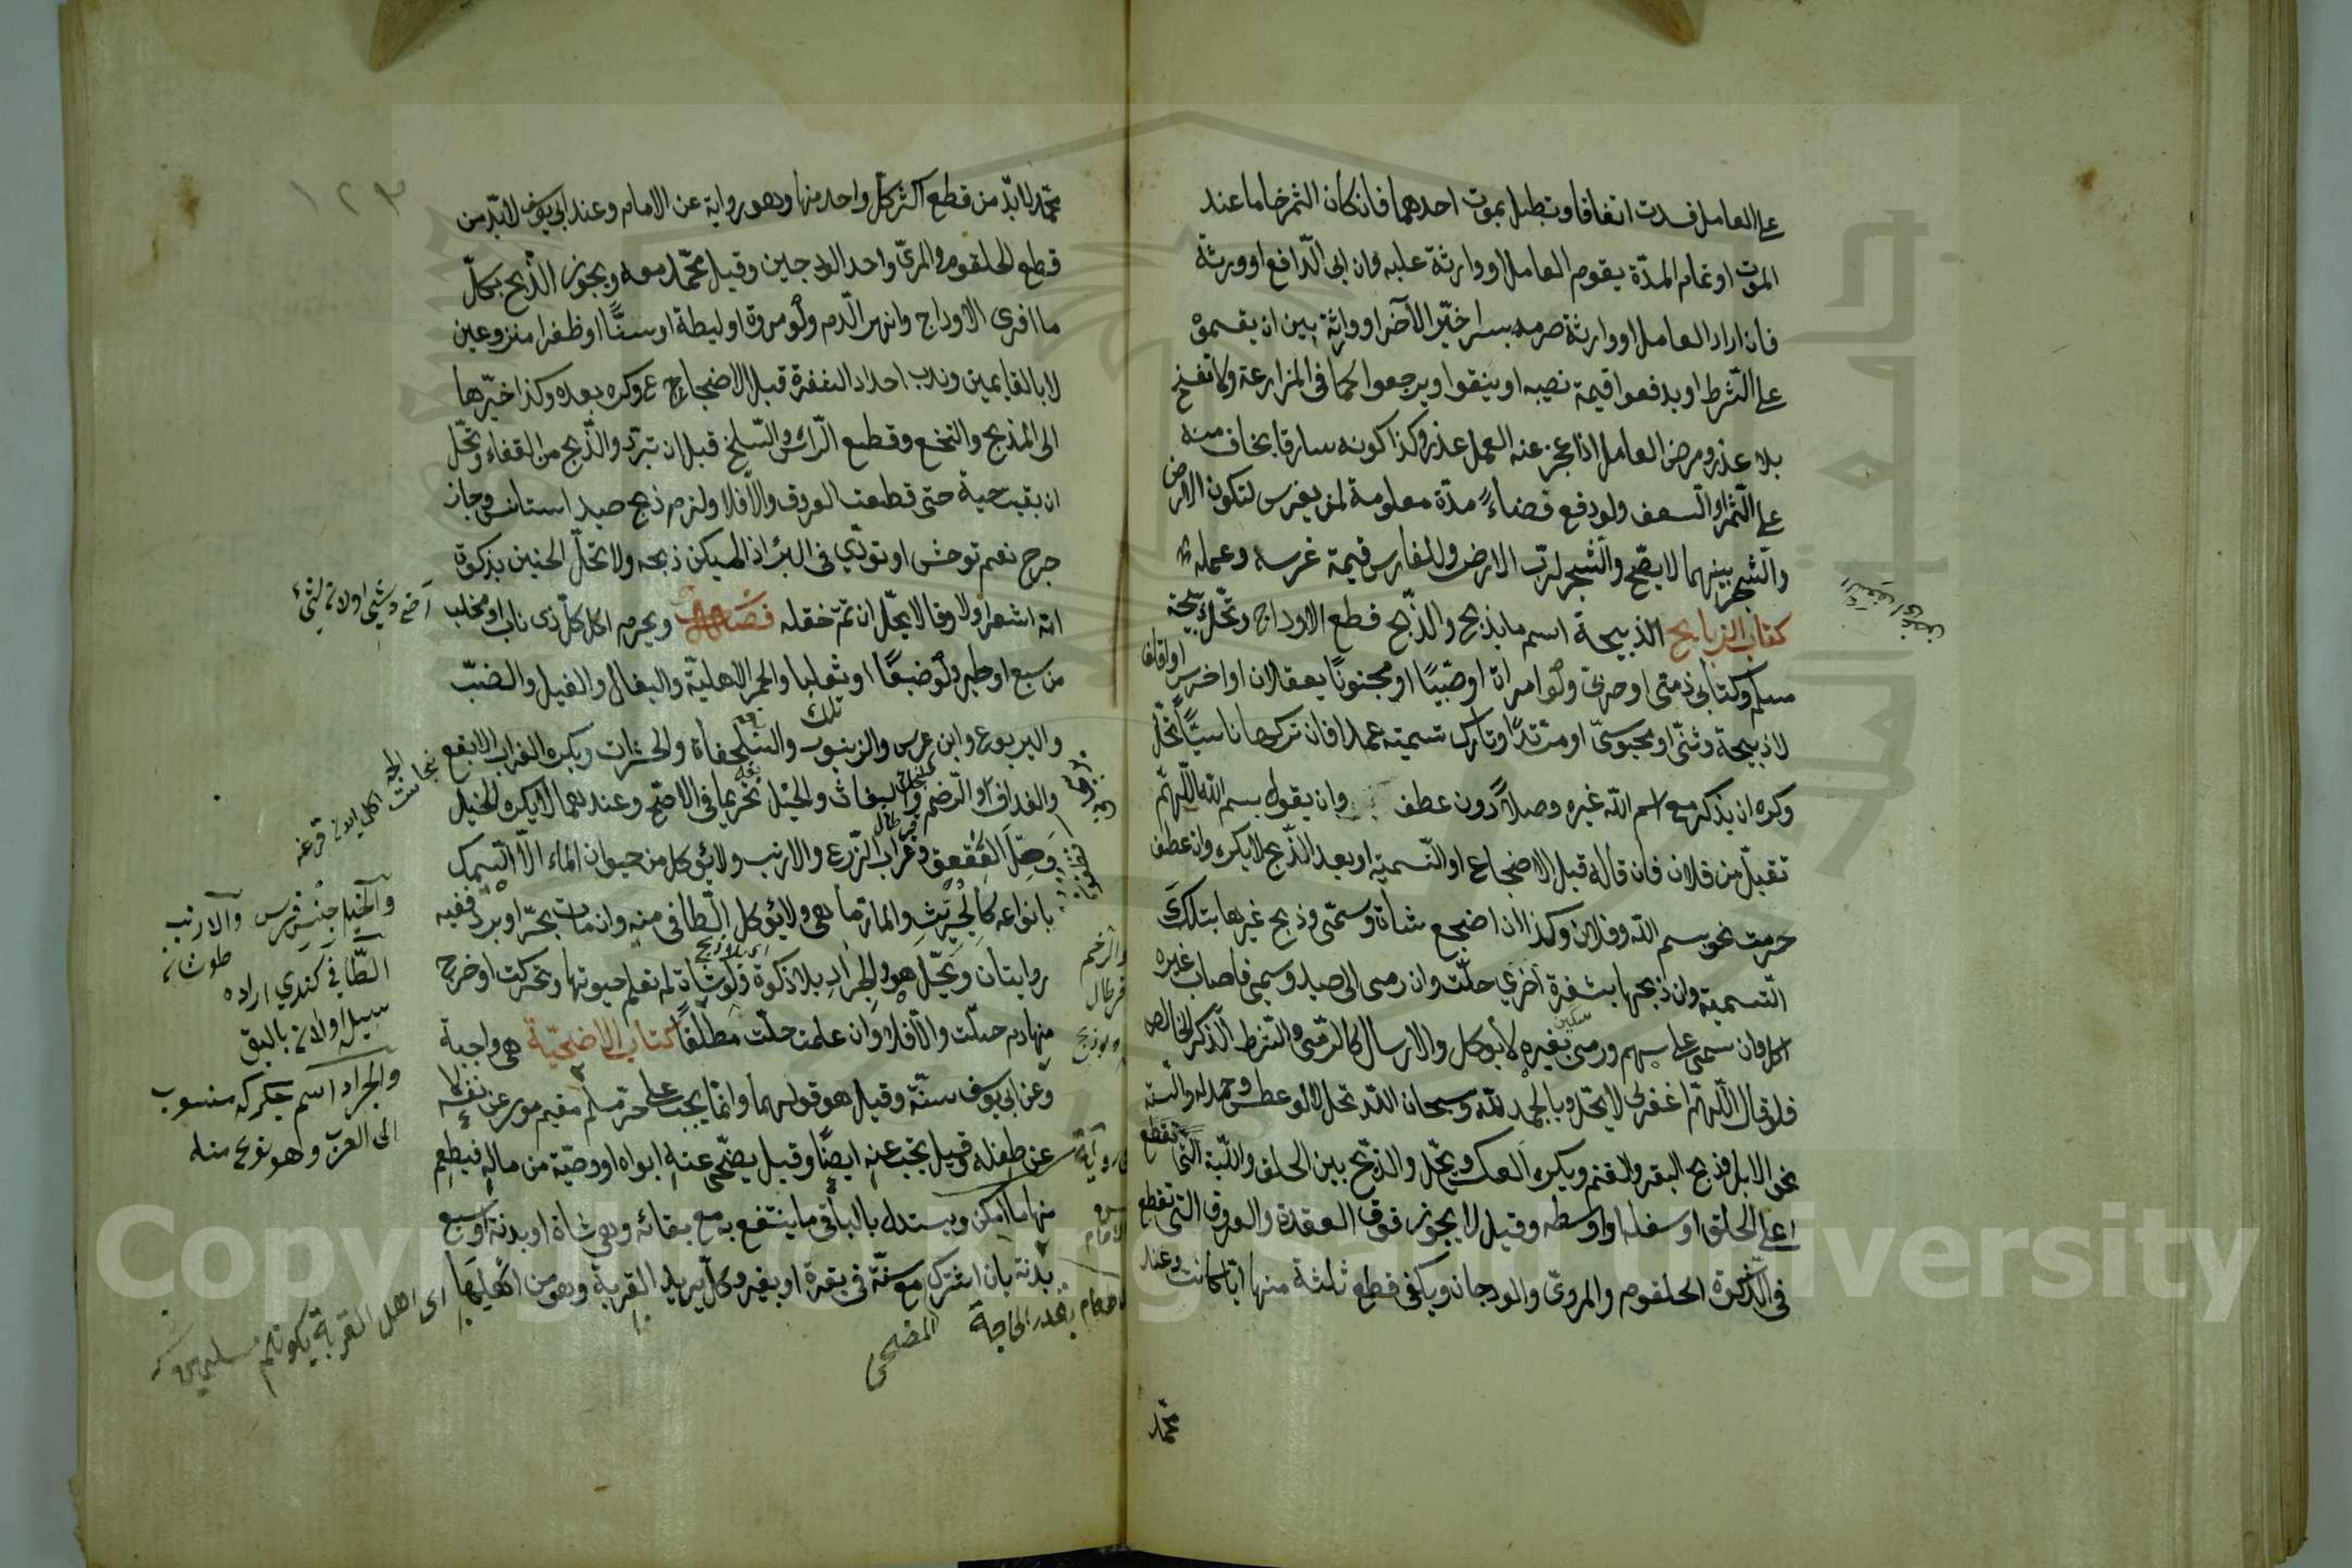 على العامل فسدت اتفاقا وتبطل بموت احدهما فان كان الثمر خاما عند
الموت او تمام المدّة يقوم العامل او وارثة عليه وان ابى الدّافع او ورثة
فان اراد العامل او وارثة صرمه بسرا خيّر الآخر او وارثة بين ان يقسموه
على الشّرط او يدفعوا قيمة نصيبه او ينفقوا ويرجعوا كما فى المزارعة ولا تفسخ
بلا عذر ومرض العامل اذا عجز عنه العمل عذر وكذا كونه سارقا يخاف منه
على الثّمر او السعف ولو دفع فضاءً مدّة معلومة لمن يغرس لتكون الارض
والشّجر بينهما لا يصّح والشّجر لربّ الارض وللغارس قيمة غرسه وعمله
كتاب الذبايح الذبيحة اسم ما يذبح والذّبح قطع الاوداج وتحلّ ذبيحة
مسلم وكتابى ذمّى او حربّى ولو امراة او صبيّا او مجنونًا يعقلان او اخرس او اقلف
لا ذبيحة وثنىّ او مجوسىّ او مرتدّ او تارك تسميته عمدا فان تركها ناسيًا تحلّ
وكره ان يذكر مع اسم اللّه غيره وصلاً دون عطف وان يقول بسم اللّه اللّهمّ
تقبّل من فلان فان قاله قبل الاضجاع او التّسمية او بعد الذّبح لا يكره وان عطف
حرمت نحو بسم اللّه وفلان وكذا ان اضجع شاة وسمّى وذبح غيرها بتلك
التّسمية وان ذبحها بشفرة اخرى حلّت وان رمى الى صيد وسمّى فاصاب غيره
اكل وان سمّى على سهم ورمى بغيره لا يوكل والارسال كالرّمى والشّرط الذّكر الخالص
سكين
فلو قال اللّهمّ اغفر لى لا يحّل وبالحمد للّه وسبحان اللّه تحل لا لو عطس وحمد له والسّنة
نحر الابل وذبح البقر والغنم ويكره العكس ويحّل والذبح بين الحلق واللّبّة
اعلى الحلق او سفله او اوسطه وقيل لا يجوز فوق العقدة والعروق التى تقطع
فى الذّكوة الحلقوم والمرئ والودجان ويكفى قطع ثلثة منها ايّا كانت وعند
محمّد
١٢٣
محمّد لا بدّ من قطع اكثر كلّ واحد منها وهو رواية عن الامام وعند ابى يوسف لا بدّ من
قطع الحلقوم والمرىّ واحد الودجين وقيل محمّد معه ويجوز الذّبح بكلّ
ما افرى الاوداج وانهر الدّم ولو مروة او ليطة او سنًّا او ظفرا منزوعين
لا بالقايمين وندب احداد الشفرة قبل الاضجاع وكره بعده وكذا جرّها
الى المذبح والنخع وقطع الرّاس والسّلخ قبل ان تبرد والذّبح من القفاء وتحّل
ان بقيت حية حتى قطعت العروق والّا فلا ولزم ذبح صيد استانس وجاز
جرح نعم توحش او تردّى فى البئر اذا لم يمكن ذبحه ولا تحلّ الجنين بذكوة
امّه اشعر او لا وقالا يحّل ان تمّ خلقه فصل ويحرم اكل كلّ ذى ناب او مخلب
من سبع او طير ولو ضبعًا او ثعلبا والحمر الاهليّة والبغال والفيل والضبّ
واليربوع وابن عرس والزنبور والسّلحفاة والحشرات ويكره الغراب الابقع
والغداف والرّخم والبغاث والخيل تحريما فى الاصحّ وعندهما لا يكره الخيل
وحلّ العقعق وغراب الزّرع والارنب ولا يؤكل من حيوان الماء الّا السّمك
بانواعه كالجرّيث والمارماهى ولا يؤكل الطّافى منه وان مات بحرّ او برد ففيه
روايتان ويحّل هو والجراد بلا ذكوة ولو شاة لم تعلم حيوتها وتحركت او خرج
منها دم حلّت والّا فلا وان علمت حلّت مطلقًا كتاب الاضحيّة هى واجبة
وعن ابى يوسف سنّة وقيل هو قولهما وانّما يجب على حرّ مسلم مقيم موسر عن نفسه
عن طفله وقيل يجب عنه ايضًا وقيل يضحّى عنه ابواه او وصيّه من ماله فيطعم
منها ما امكن ويستدل بالباقى ما ينتفع به مع بقائه وهى شاة او بدنة او سبع
بدنة بان اشترك مع ستّة فى بقرة او بعير وكلّ يريد القربة وهو من اهليها
والخيل جنس فرس والارنب
طوشان
الطّافى كندى اراده
سيله اولان بالق
والجراد اسم چكركه منسوب
الى العرب وهو نوع منه
بقدر الحاجة المضحى
اى اهل القربة
Copyright © King Saud University